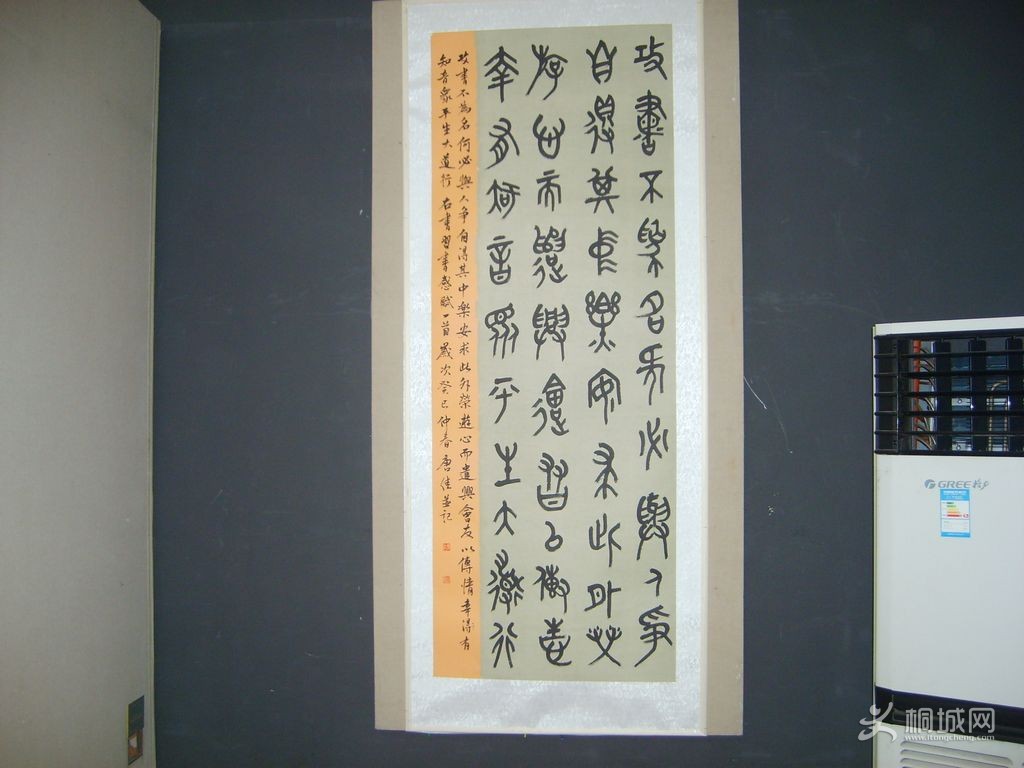 攻書不為名何必與人爭
自得其中樂安求此外榮
游心而遣興會友以傳情
幸有知音眾平生大道行
攻書不為名何必與人爭自得其中樂安求此外榮遊心而遣興會友以傳情幸得有
知音眾平生大道行 右書習書感賦一首歲次癸巳仲春唐佳並記
GREE格力
桐城网
www.itongcheng.com